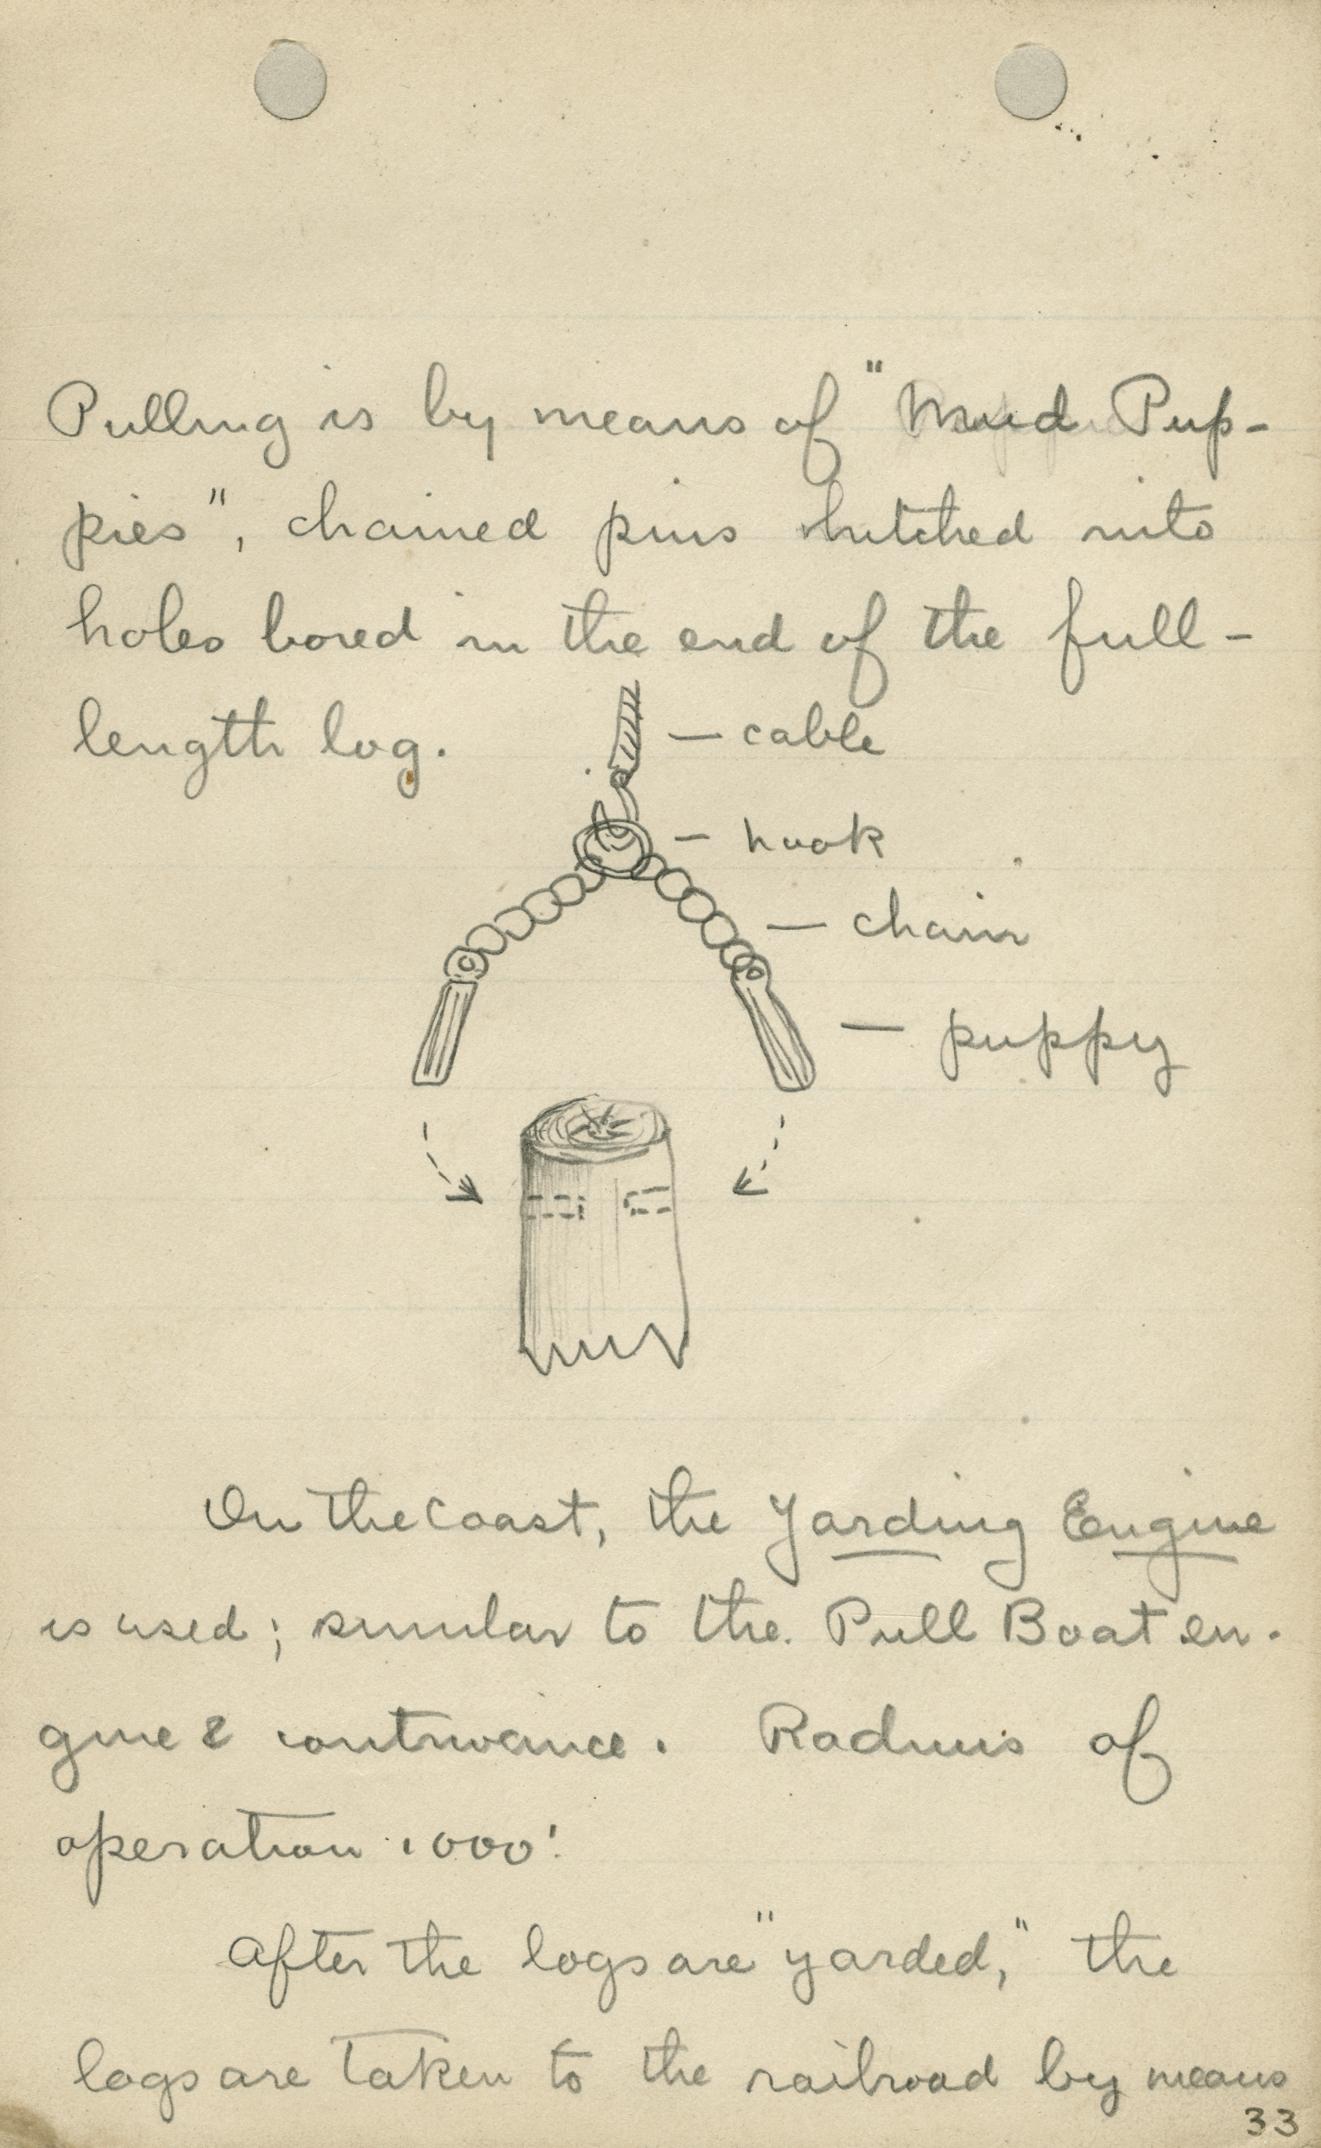 Pulling is by means of "Mud Pup-
pies", chained pins hitched into
holes bored in the end of the full-
length log.
— cable
— hook
— chain
— puppy
On the Coast, the Yarding Engine
is used; similar to the Pull Boat en-
gine & contrivance. Radius of
operation 1000'.
After the logs are "yarded," the
logs are taken to the railroad by means
33